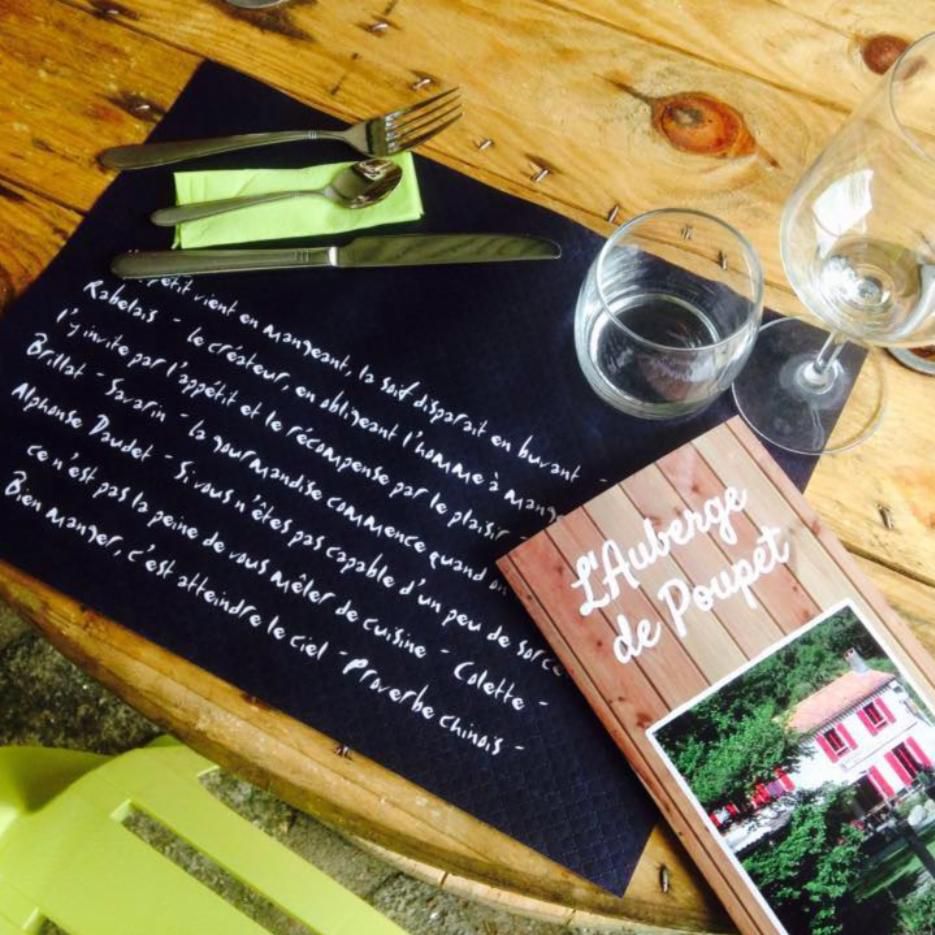 vient en mangeant, la soif disparait en buvant -
Rabelais - le créateur, en obligeant l'homme à
l'y invite par l'appétit et le récompense par le plaisir -
Brillat - Savarin - la gourmandise commence quand on
Alphonse Daudet - Si vous n'êtes pas capable d'un peu de
ce n'est pas la peine de vous mêler de cuisine - Colette -
Bien manger, c'est atteindre le ciel - Proverbe chinois -
L'Auberge
de Poupet